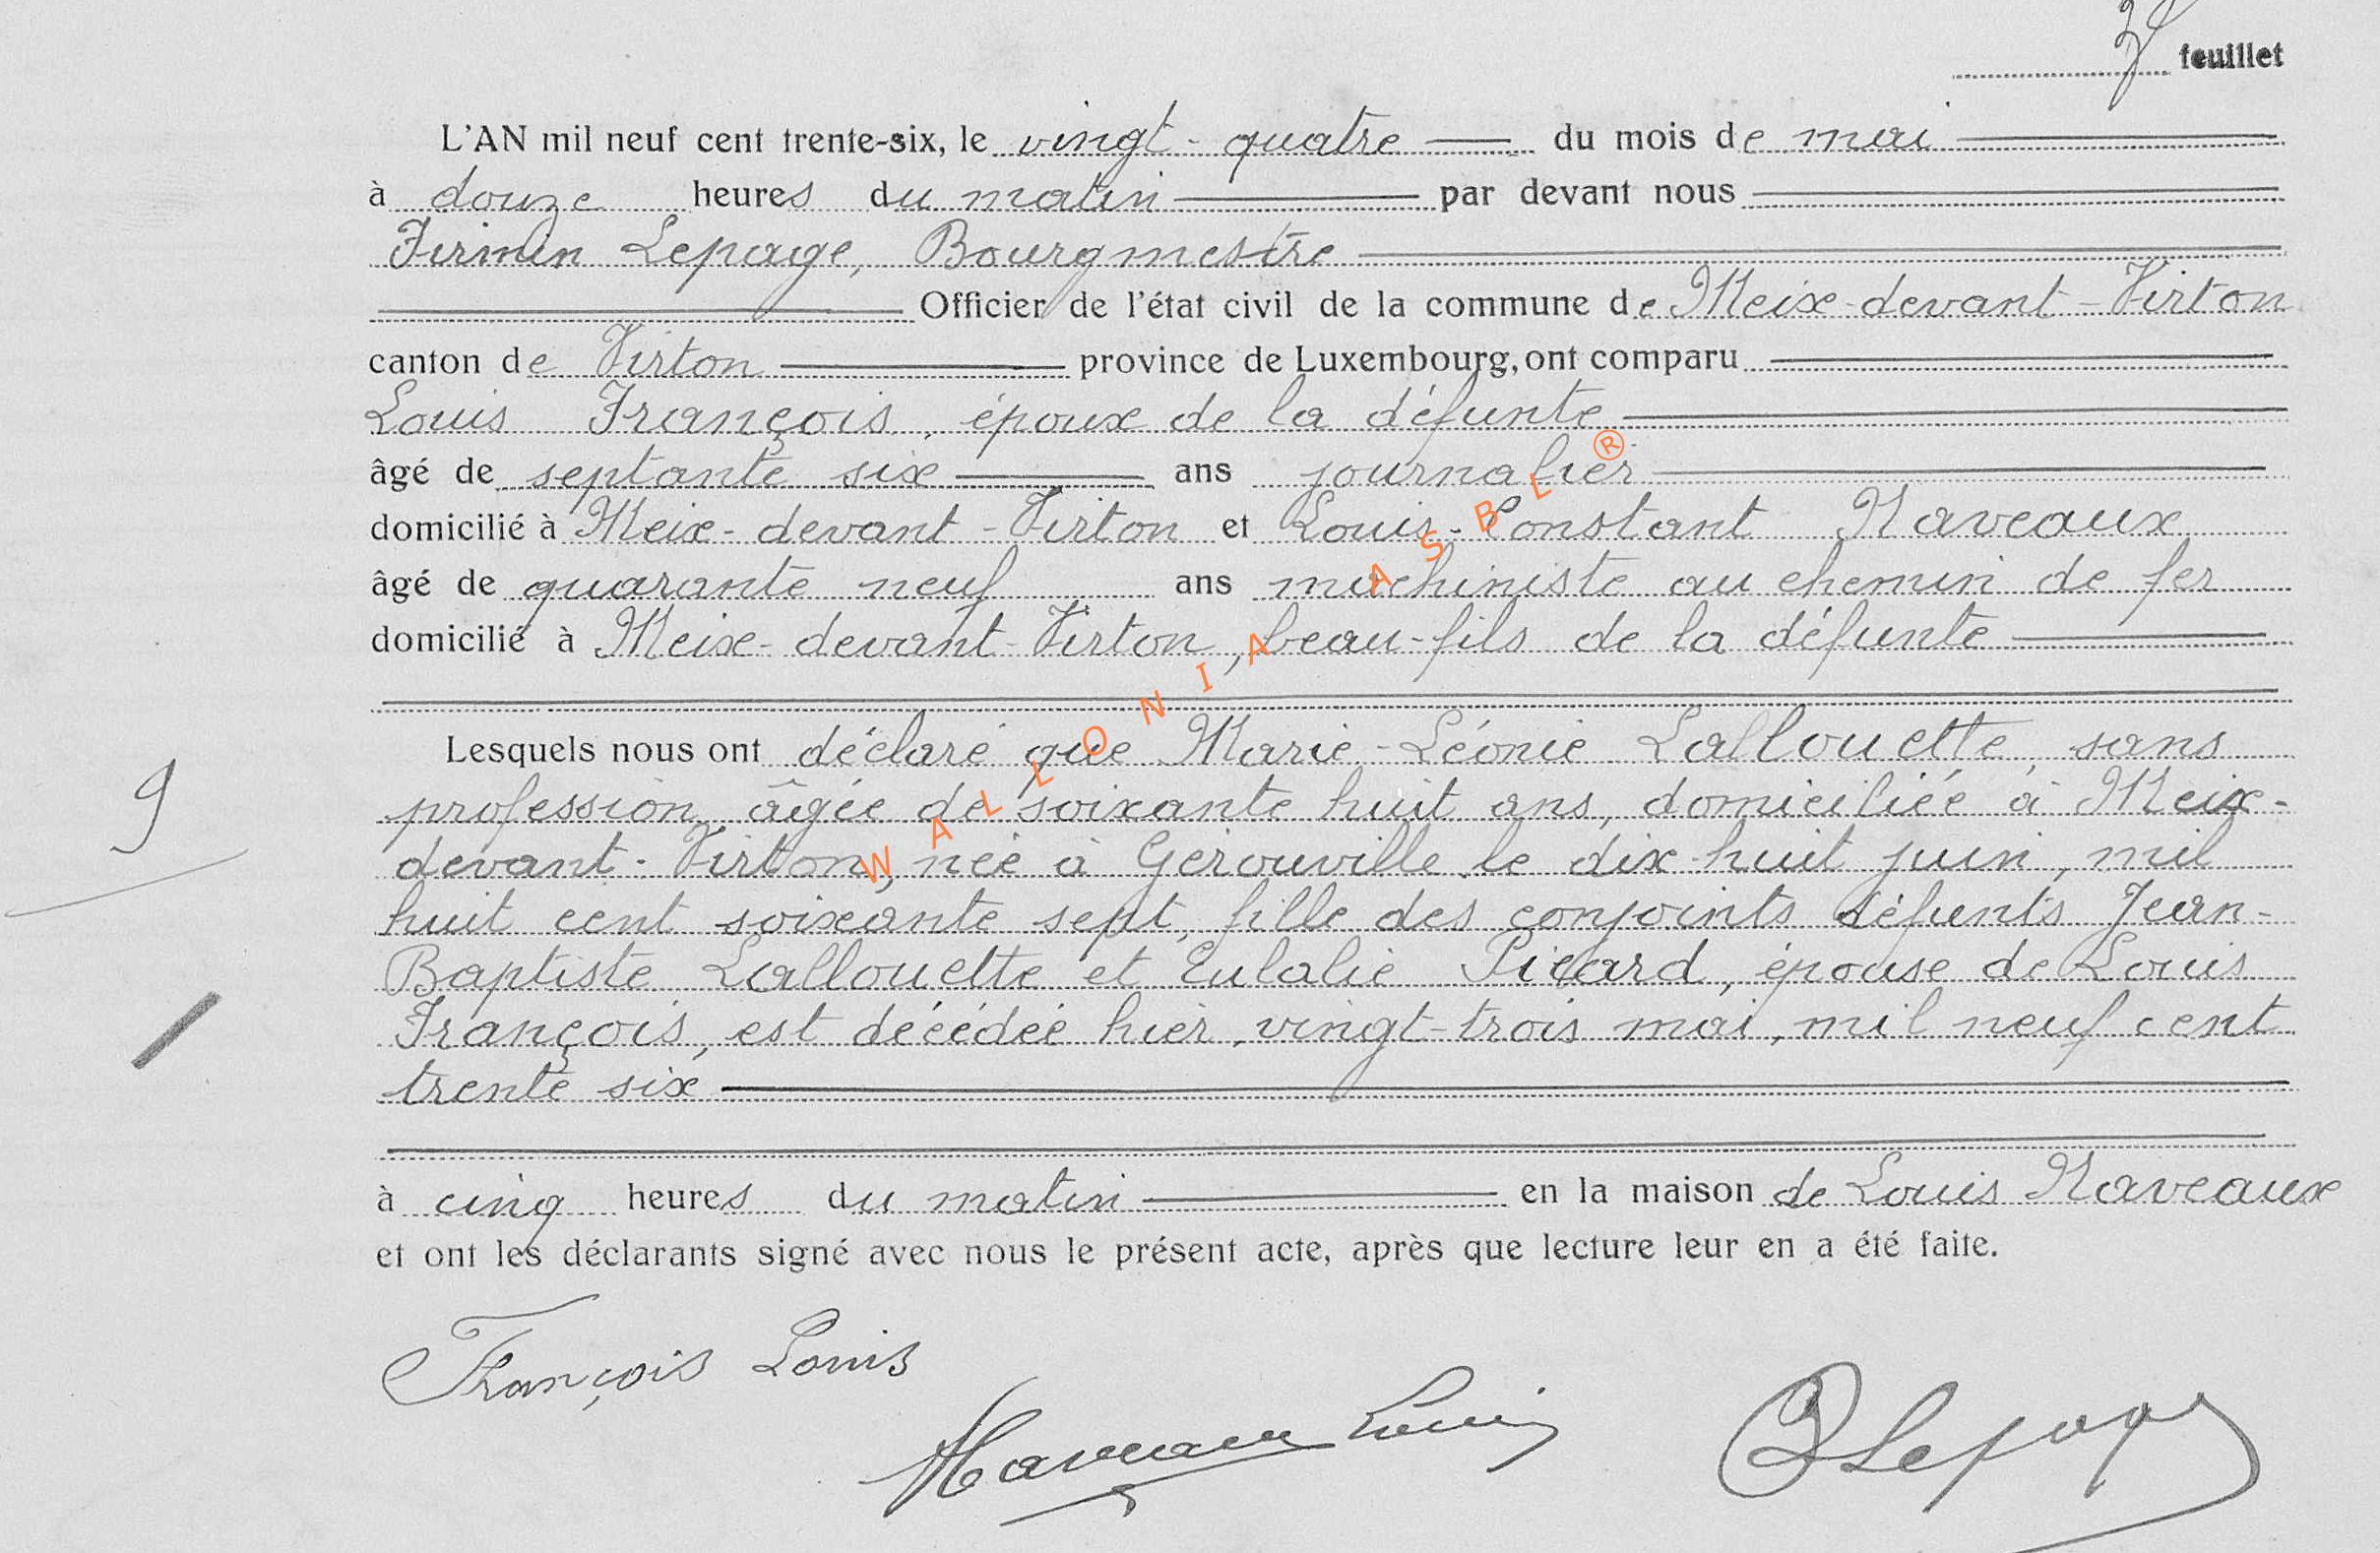 3e feuillet
L'AN mil neuf cent trente-six, le vingt-quatre du mois de mai
à douze heures du matin par devant nous
Firmin Lepage, Bourgmestre
Officier de l'état civil de la commune de Meix-devant-Virton
canton de Virton province de Luxembourg, ont comparu
Louis François, époux de la défunte
âgé de septante six ans journalier
domicilié à Meix-devant-Virton et Louis-Constant Naveaux
âgé de quarante neuf ans machiniste au chemin de fer
domicilié à Meix-devant-Virton, beau-fils de la défunte
Lesquels nous ont déclaré que Marie-Léonie Lallouette, sans
9
profession, âgée de soixante huit ans, domiciliée à Meix-
devant-Virton, née à Gérouville le dix-huit juin, mil
huit cent soixante sept, fille des conjoints défunts Jean-
Baptiste Lallouette et Eulalie Picard, épouse de Louis
François, est décédée hier, vingt-trois mai, mil neuf cent
trente six
à cinq heures du matin en la maison de Louis Naveaux
et ont les déclarants signé avec nous le présent acte, après que lecture leur en a été faite.
François Louis
Naveaux Louis
Lepage
WALLONIA ASBL ®